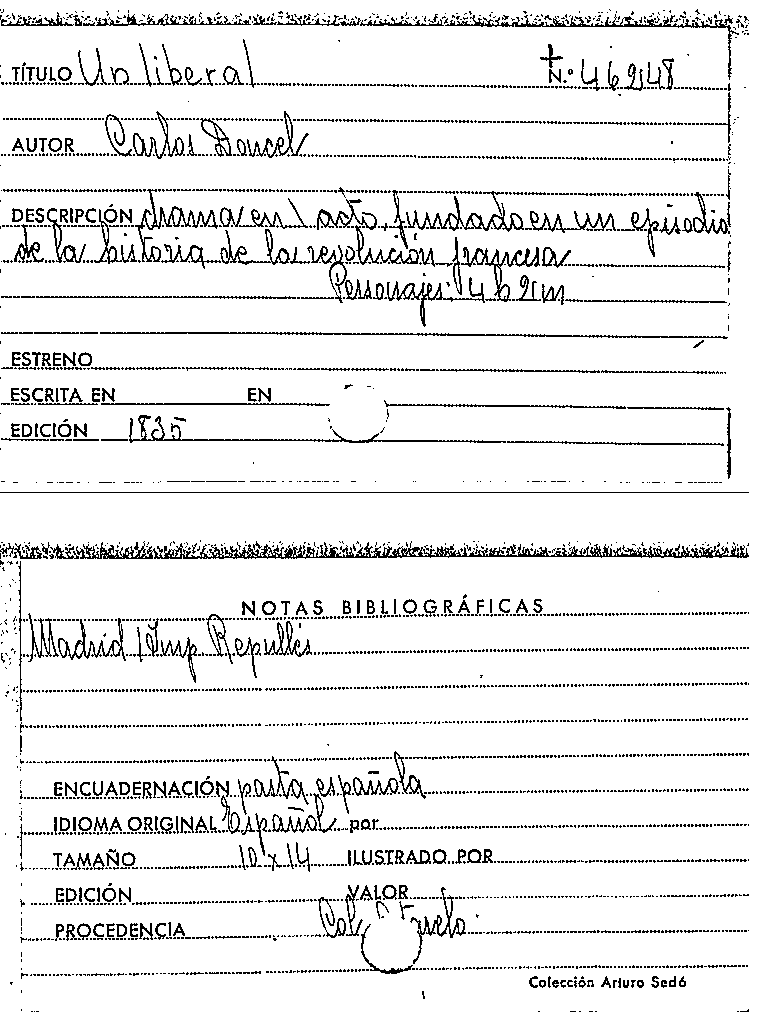 TÍTULO Un liberal
N.º 46948
AUTOR Carlos Doncel
DESCRIPCIÓN drama en 1 acto, fundado en un episodio
de la historia de la revolución francesa
Personajes: 14 h 2 m
ESTRENO
ESCRITA EN EN
EDICIÓN 1835
NOTAS BIBLIOGRÁFICAS
Madrid / Imp Repullés
ENCUADERNACIÓN pasta española
IDIOMA ORIGINAL Español por
TAMAÑO 10 x 14 ILUSTRADO POR
EDICIÓN VALOR
PROCEDENCIA Col.
Colección Arturo Sedó